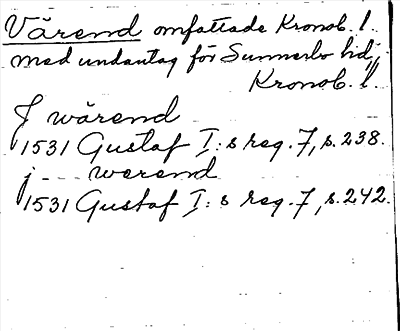 Värend omfattade Kronob. l.
med undantag för Sunnerbo hd,
Kronob. l.
J wärend
1531 Gustaf I:s reg. 7, s. 238.
j --- werend
1531 Gustaf I:s reg. 7, s. 242.